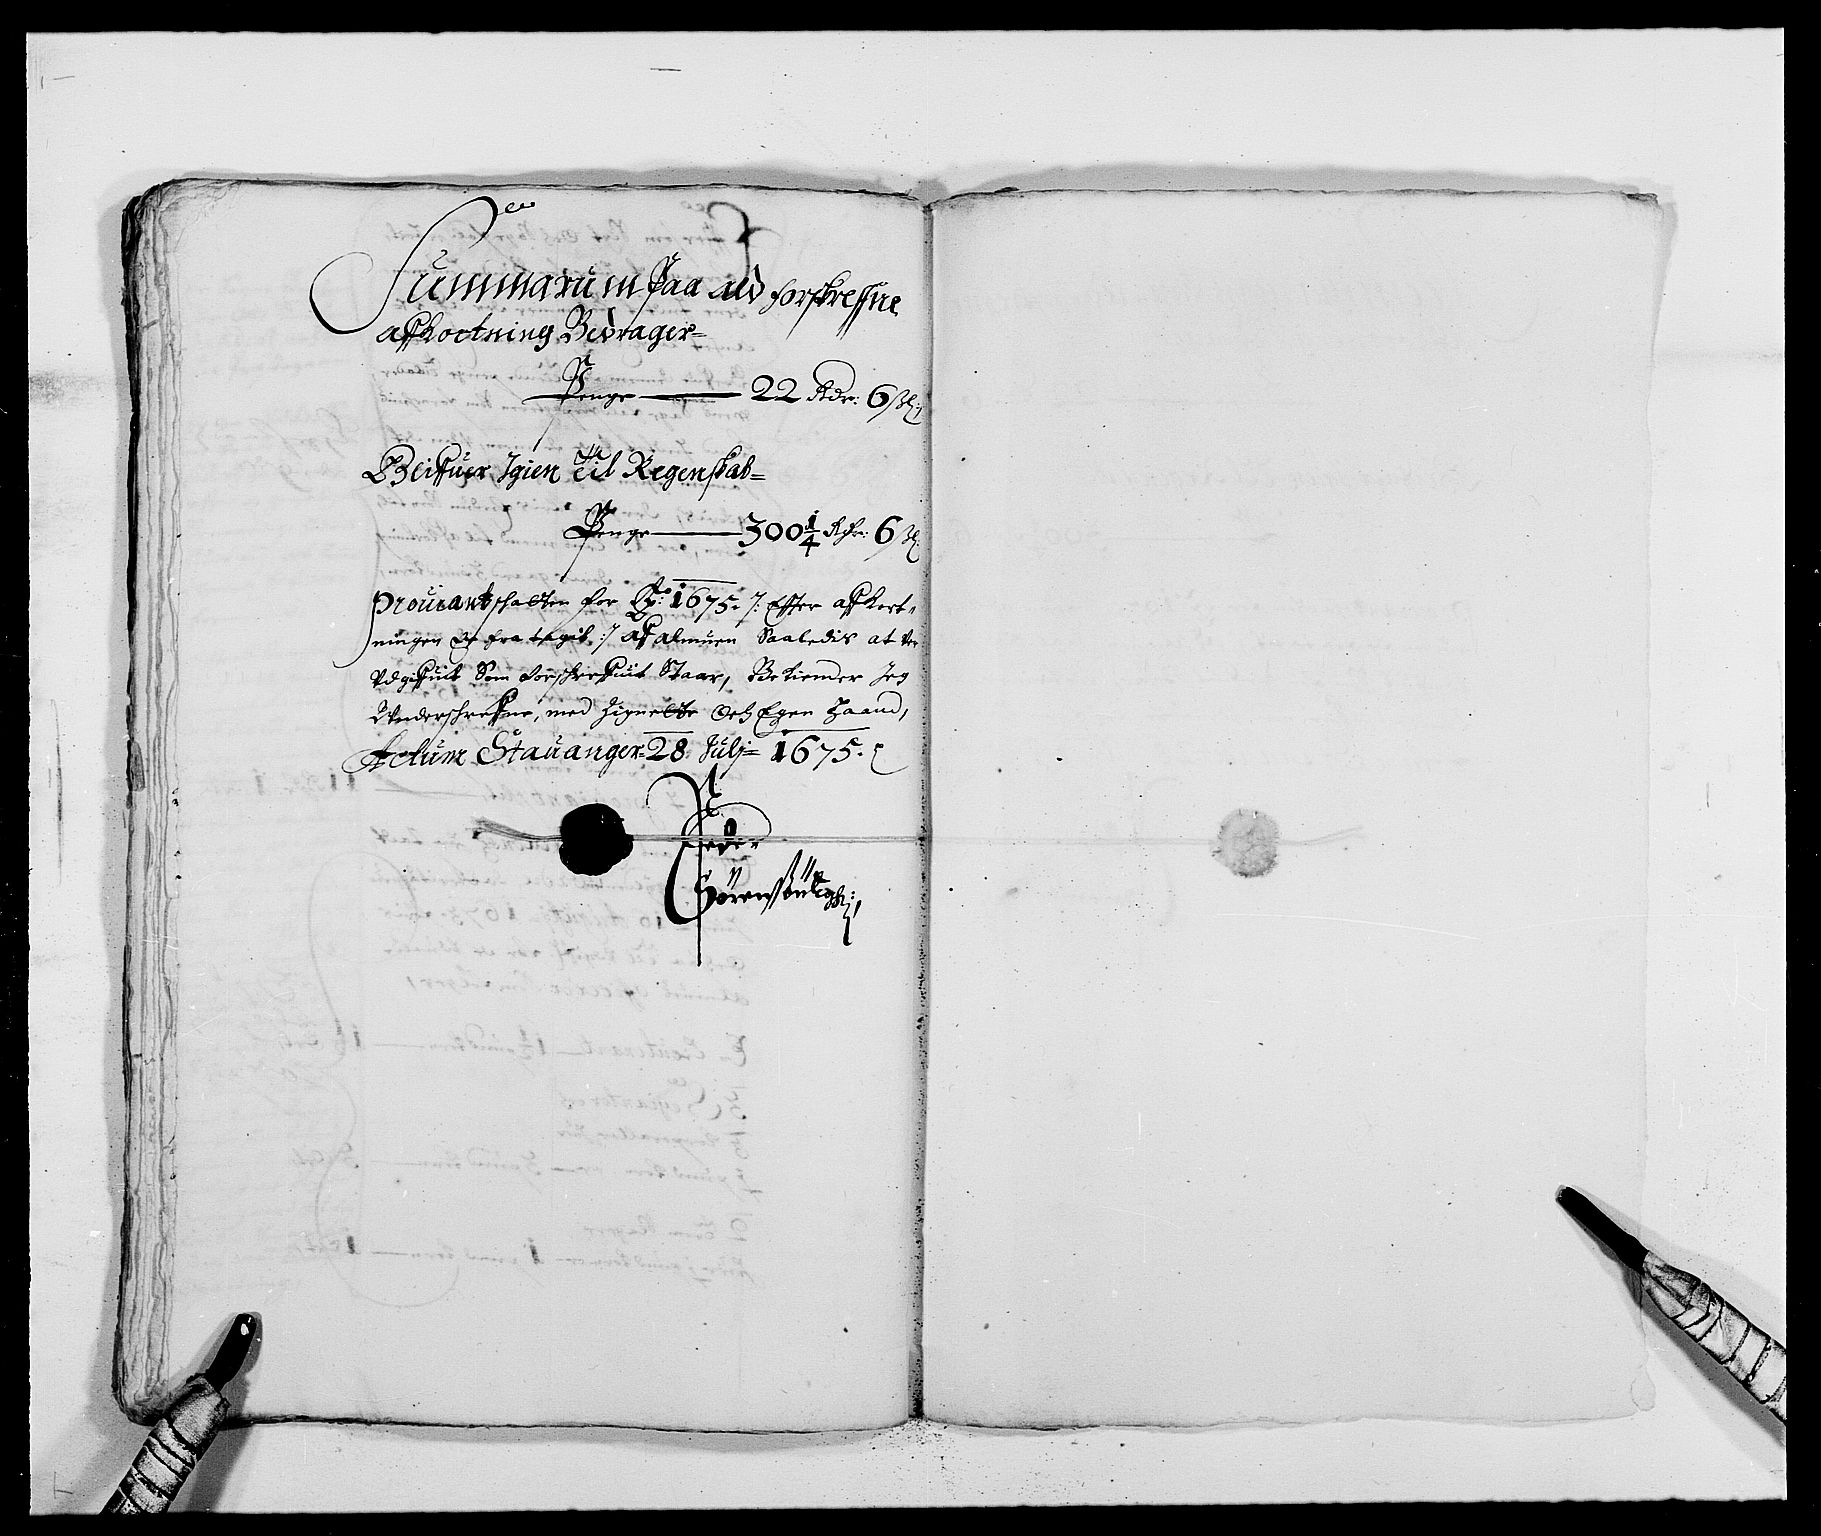 Summarum Paa ald forskrefne
afkortning Bedrager=
Penge 22 Rdr: 6 ß:
Blifuer Igien Til Regenskab=
Penge 300 1/4 Rdr: 6 ß:
Prouiantschatten for Ao: 1675. /: Efter afkort,
ningen er fra tagit :/ af almuen Saaledis at
Vdgifuit Som forschrefuit Staar, Bekiender Jeg
Vnderschrefne, med Zignette Och Egen Haand,
Actum Stauanger 28 Julj= 1675.
Peder
Sörenssön